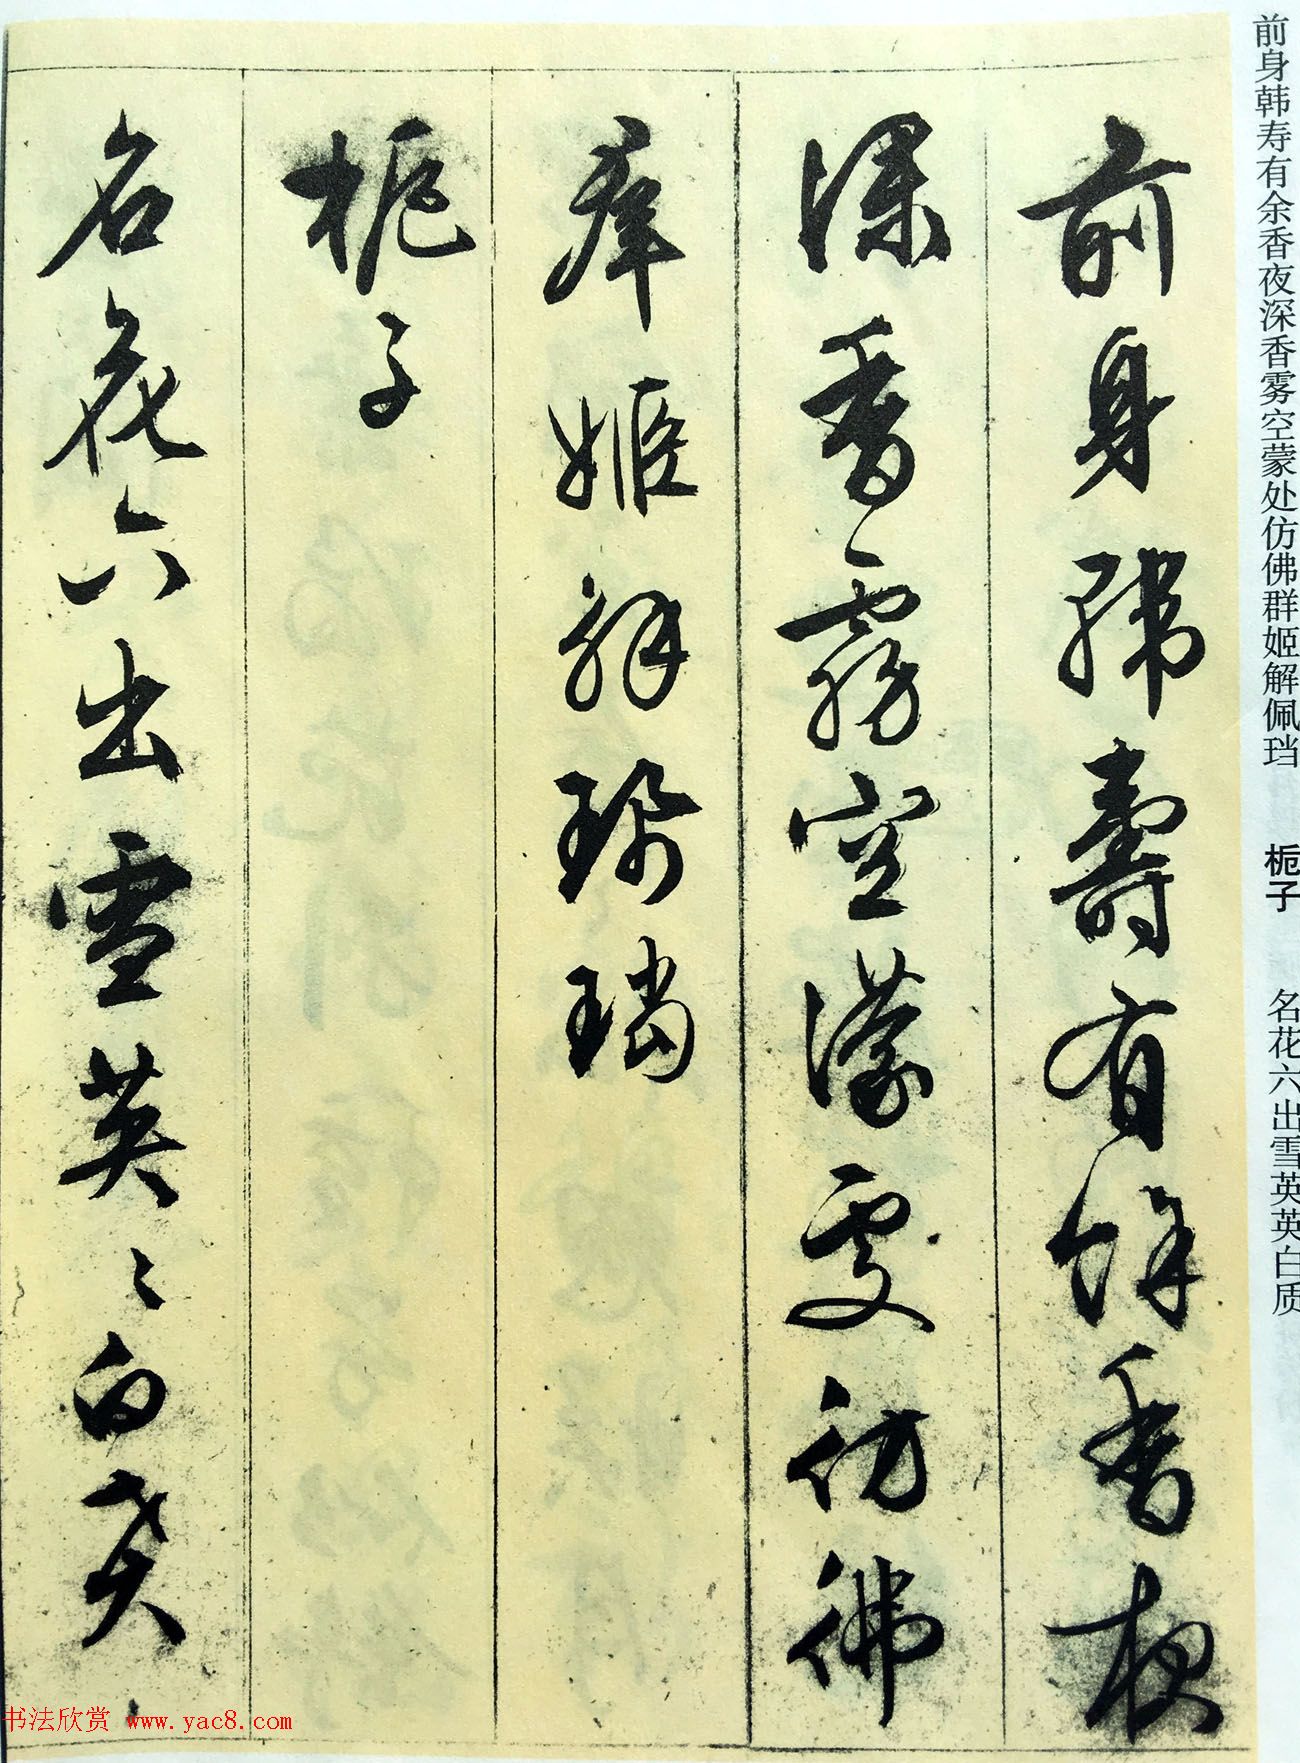 前身韩寿有余香夜深香雾空蒙处仿佛群姬解佩珰 栀子 名花六出雪英英白质
前身韓壽有餘香夜
深香霧空濛處彷彿
群姬解珮璫
栀子
名花六出雪英〻白質
书法欣赏 www.yac8.com